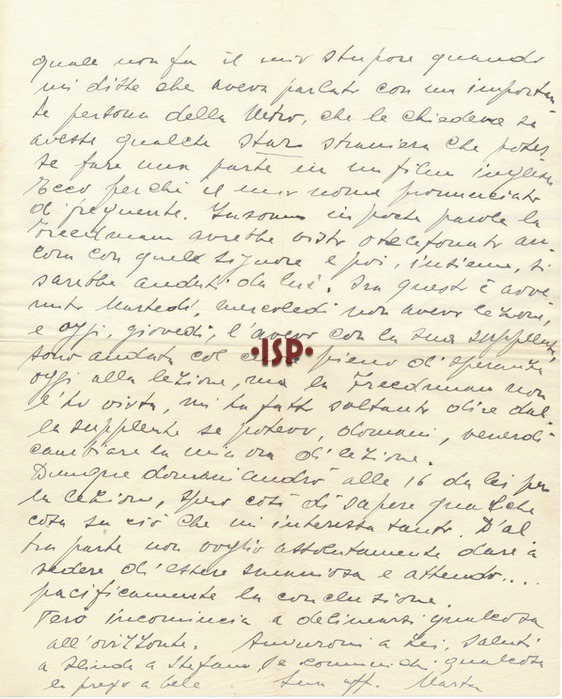 quale non fu il mio stupore quando
mi disse che aveva parlato con un importan
te persona della Metro, che le chiedeva se
avesse qualche star straniera che potes
se fare una parte in un film inglese
Ecco perché il mio nome pronunciato
di frequente. Insomma in poche parole la
Freedman avrebbe visto o telefonato an
cora con quel signore e poi, insieme, si
sarebbe andati da lui. Ora questo è avve
nuto Martedì, mercoledì non avevo lezione,
e oggi, giovedì, l'avevo con la sua supplente,
sono andata col pieno di speranza
oggi alla lezione, ma la Freedman non
l'ho vista, mi ha fatto soltanto dire dal
la supplente se potevo, domani, venerdì
cambiare la mia ora di lezione.
Dunque domani andrò alle 16 da lei per
la lezione, spero così di sapere qualche
cosa su ciò che mi interessa tanto. D'al
tra parte non voglio assolutamente dare a
vedere di essere smaniosa e attendo....
pacificamente la conclusione.
Però incomincia a delinearsi qualcosa
all'orizzonte. Auguroni a Lei, saluti
a a Stefano Se comunichi qualcosa
la prego a Sua aff. Marta
•ISP•